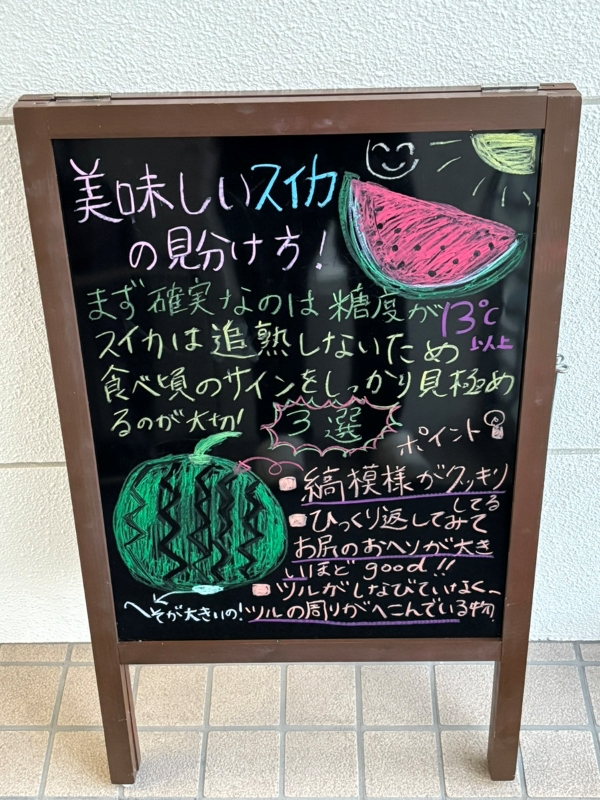 美味しいスイカ
の見分け方!
まず確実なのは糖度が13℃
以上
スイカは追熟しないため
食べ頃のサインをしっかり見極め
るのが大切!
3選
ポイント
縞模様がクッキリ
してる
ひっくり返してみて
お尻のおヘソが大き
いほどgood!!
ツルがしなびていなく〜
へそが大きいの!
ツルの周りがへこんでいる物